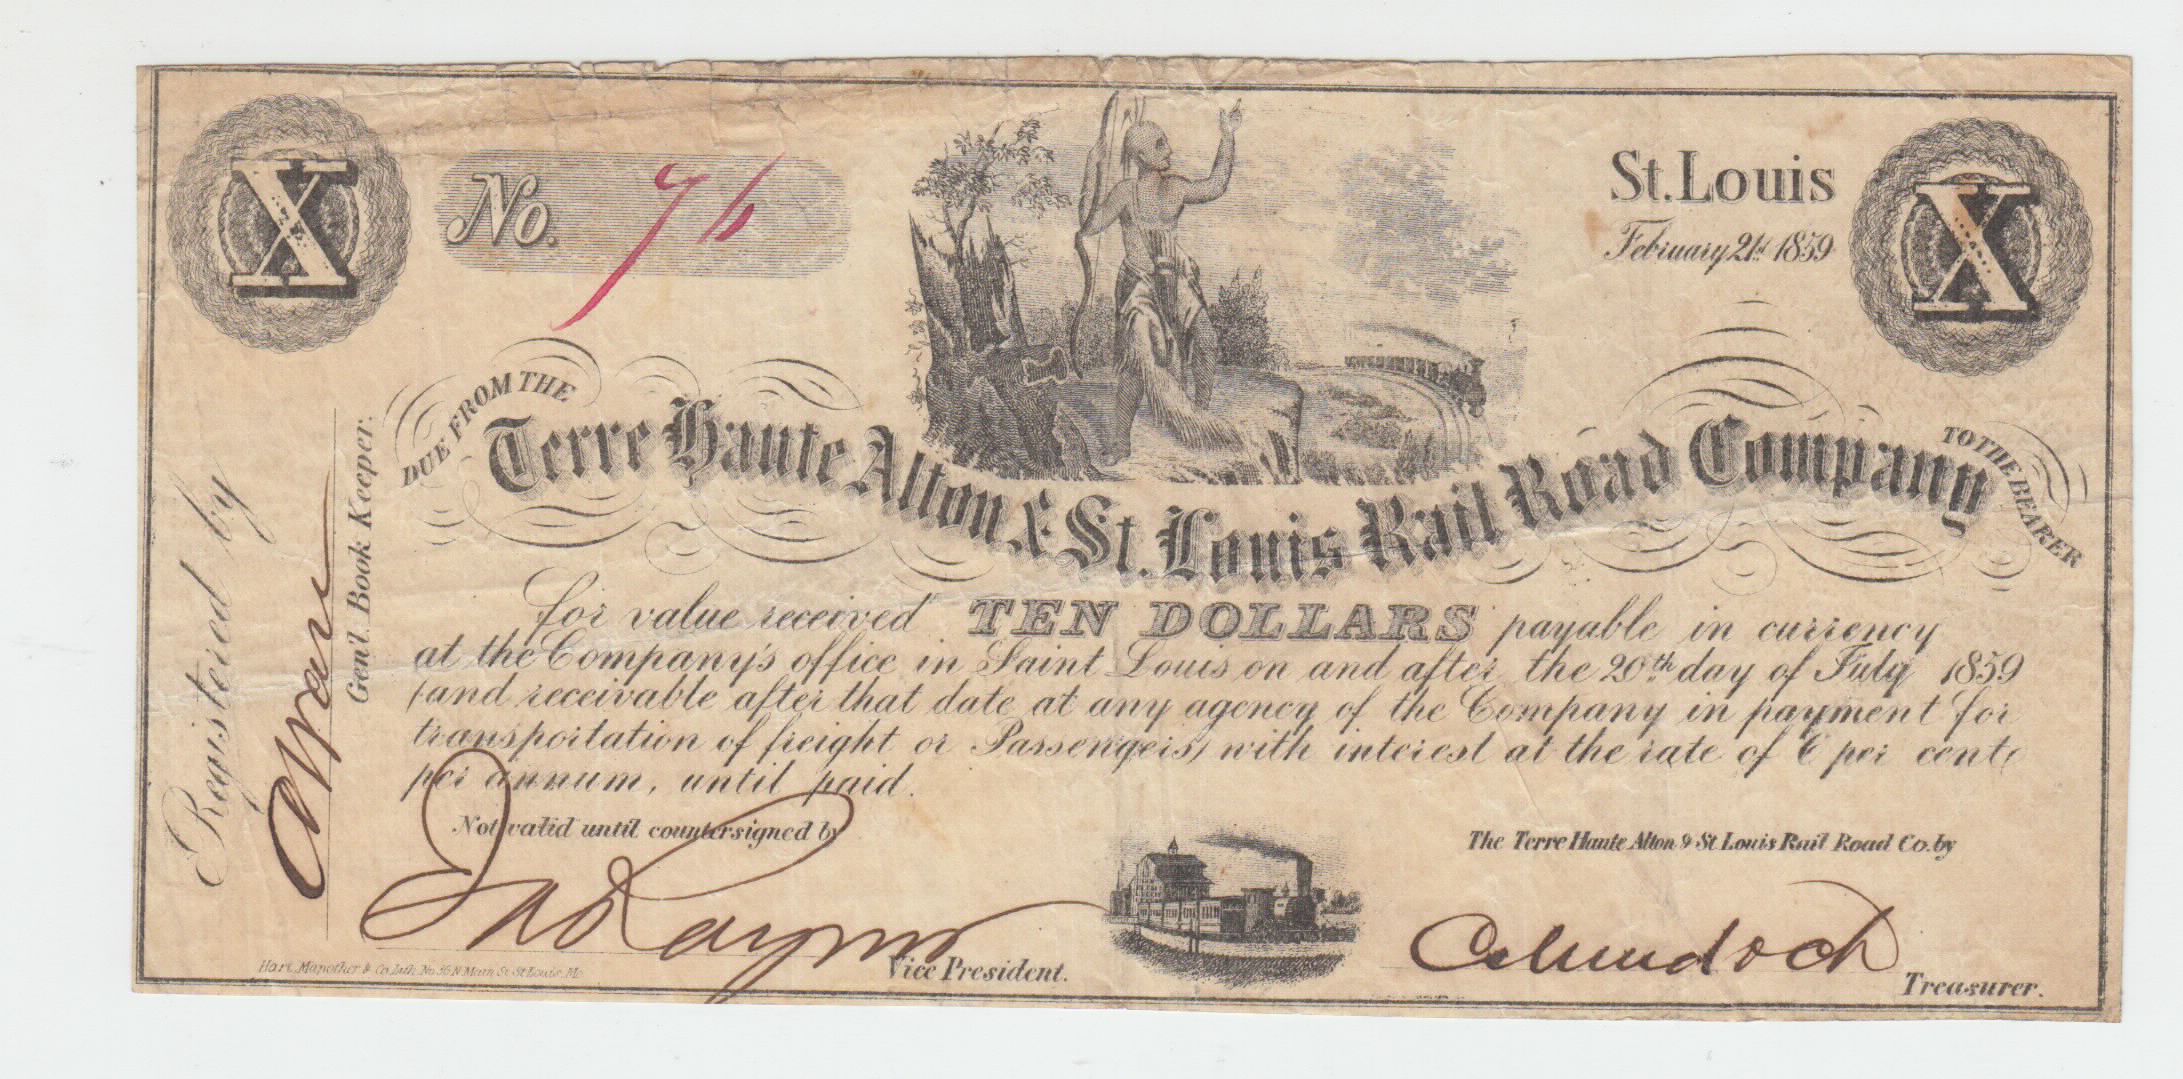 X
No. 76
St. Louis
February 21st 1859
X
DUE FROM THE
Terre Haute Alton & St. Louis Rail Road Company
TO THE BEARER
for value received TEN DOLLARS payable in currency
at the Company's office in Saint Louis on and after the 20th day of July 1859
(and receivable after that date at any agency of the Company in payment for
transportation of freight or Passengers) with interest at the rate of 6 per cent,
per annum, until paid.
Not valid until countersigned by
Vice President.
The Terre Haute Alton & St Louis Rail Road Co. by
C Murdoch
Treasurer.
Registered by
Gen'l. Book Keeper.
Hart, Mapother & Co. Lith. No. 36 N Main St. St Louis, Mo